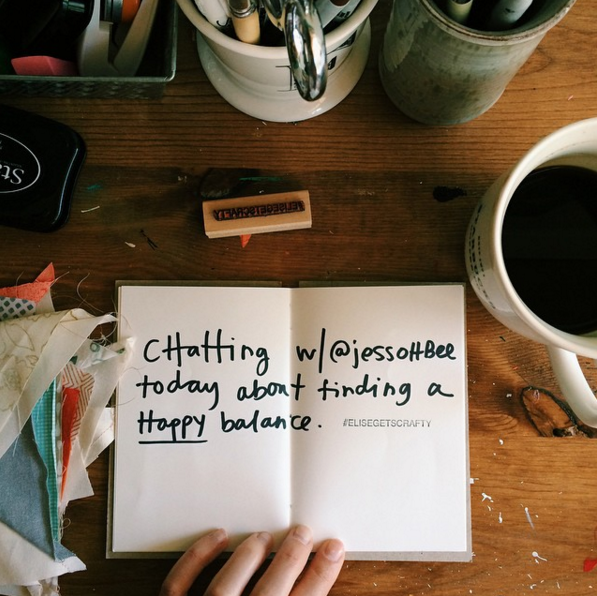 CHatting w/@jessoHBee
today about finding a
Happy balance. #ELISEGETSCRAFTY